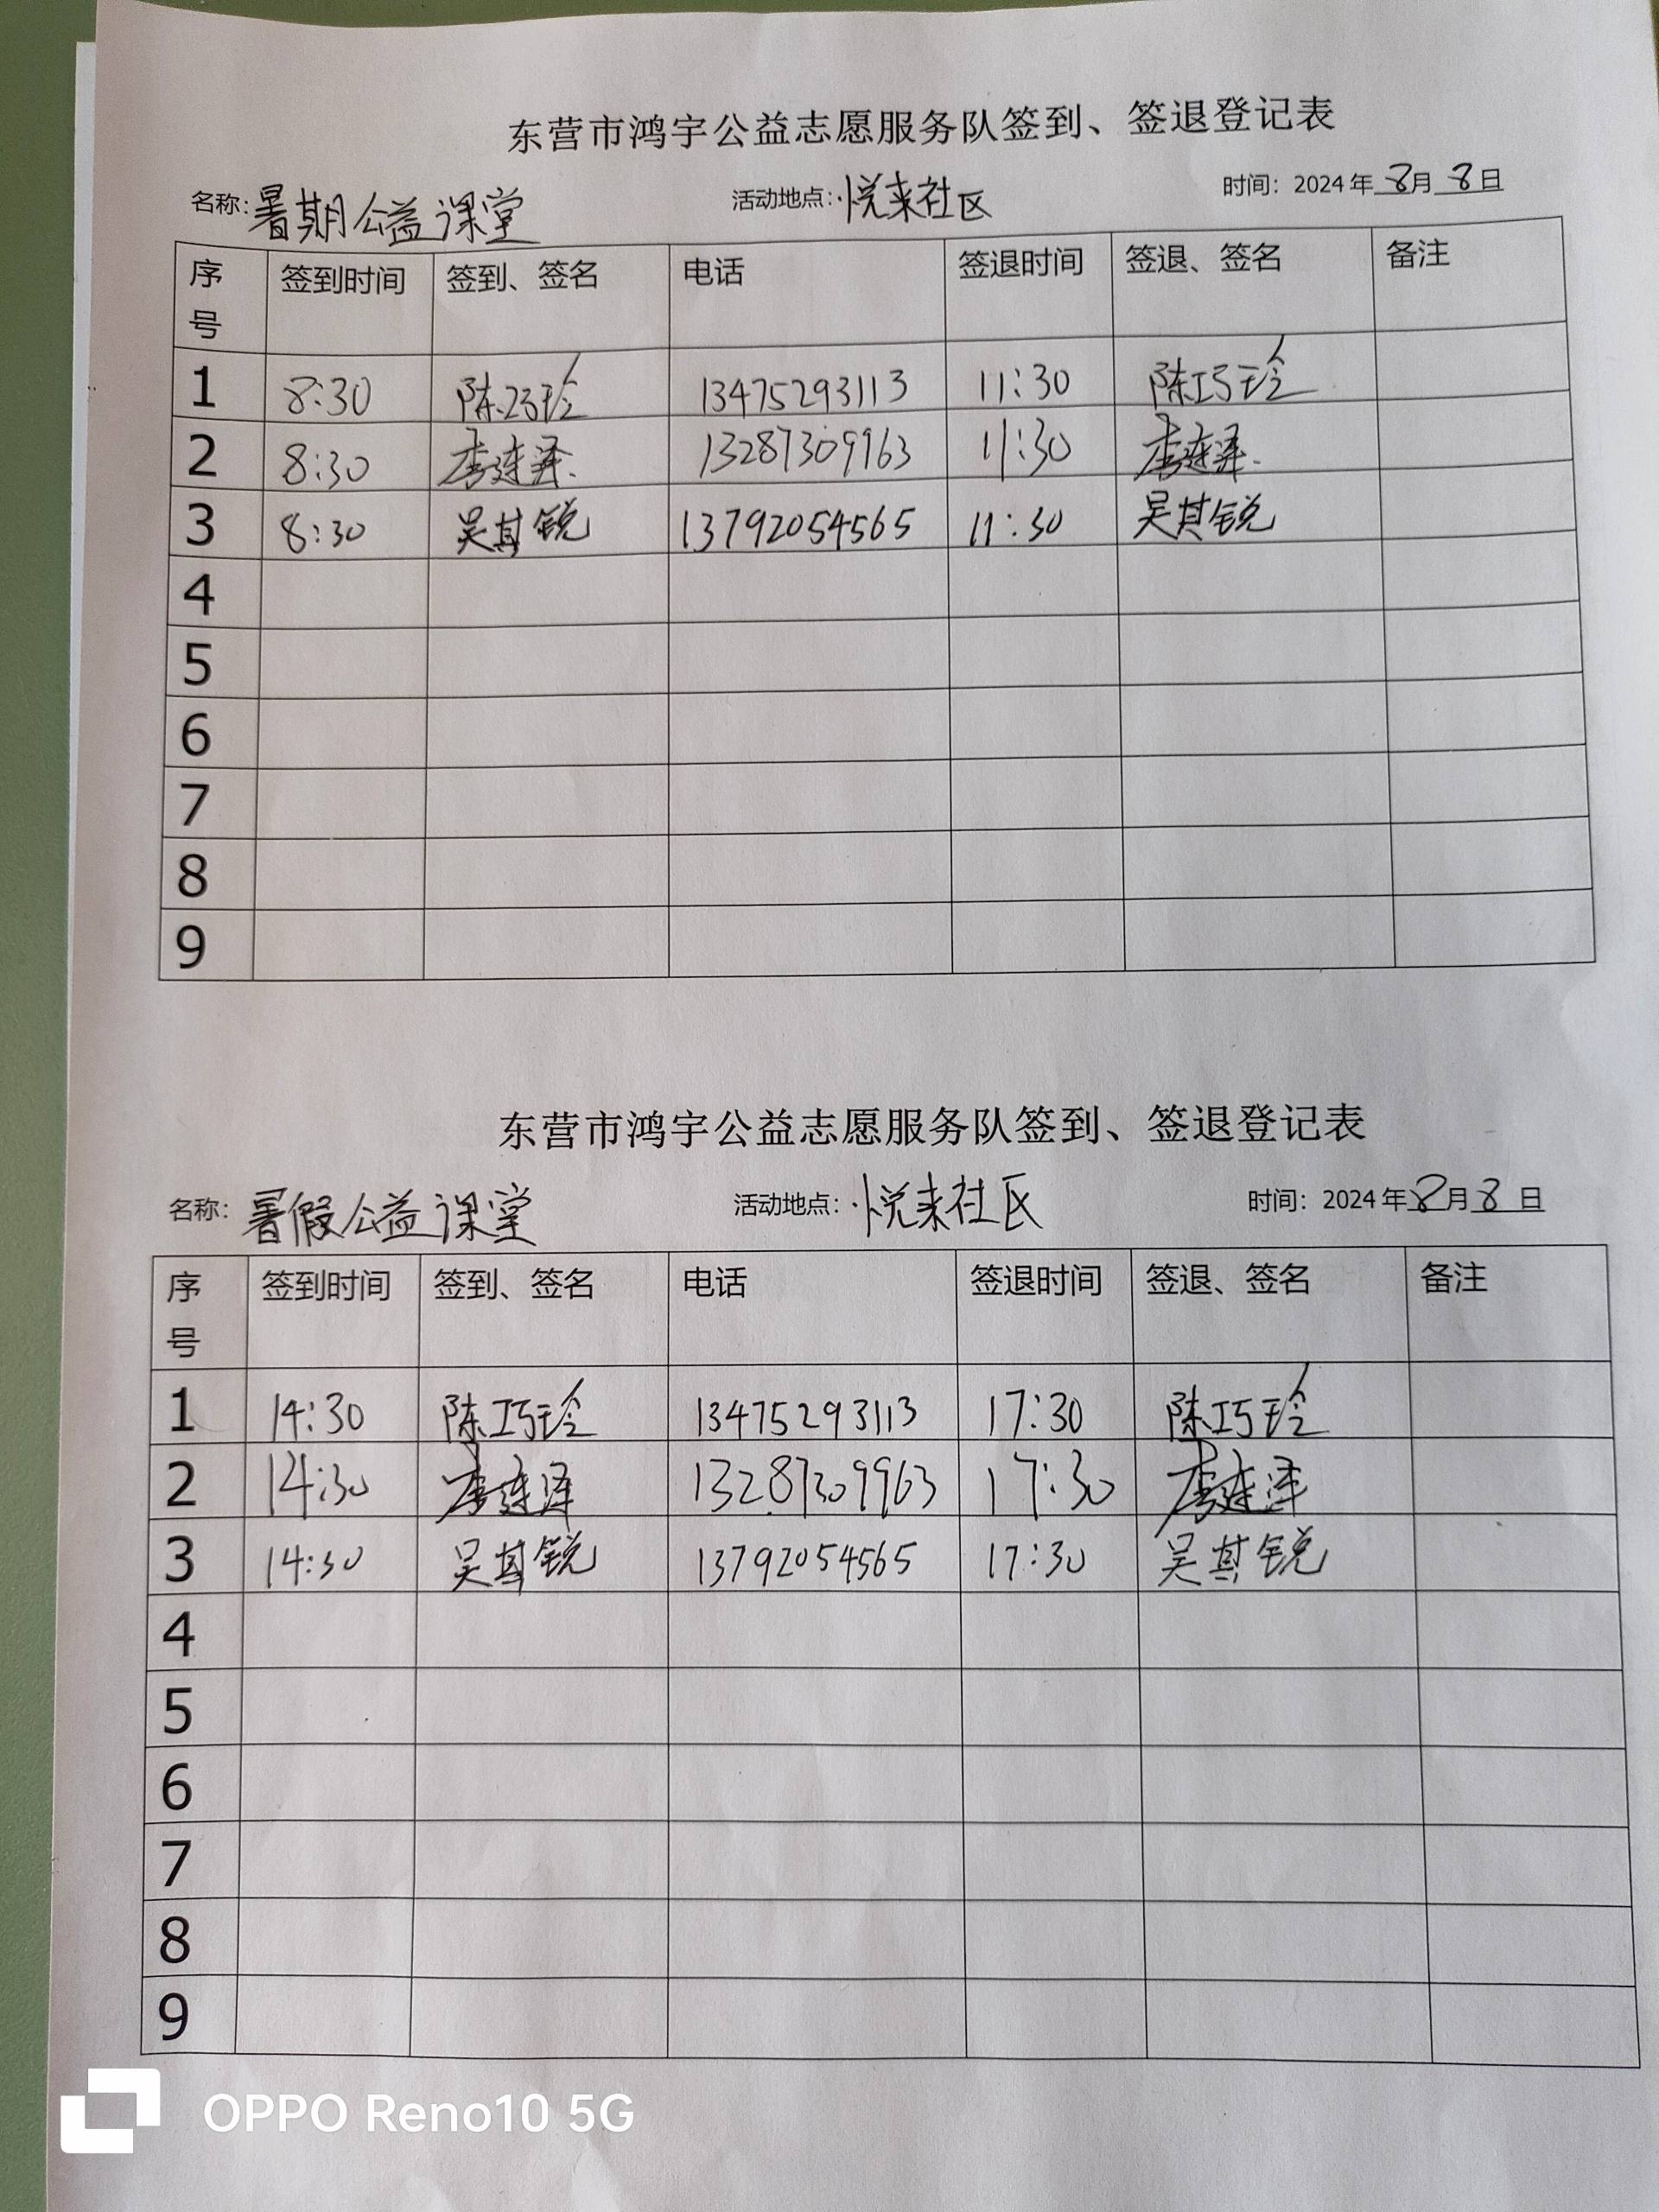 东营市鸿宇公益志愿服务队签到、签退登记表
名称：暑期公益课堂 活动地点：悦来社区 时间：2024年8月8日
序号 签到时间 签到、签名 电话 签退时间 签退、签名 备注
1 8:30 陈巧玲 13475293113 11:30 陈巧玲
2 8:30 李连泽 13287309963 11:30 李连泽
3 8:30 吴其锐 13792054565 11:30 吴其锐
4
5
6
7
8
9
东营市鸿宇公益志愿服务队签到、签退登记表
名称：暑假公益课堂 活动地点：悦来社区 时间：2024年8月8日
序号 签到时间 签到、签名 电话 签退时间 签退、签名 备注
1 14:30 陈巧玲 13475293113 17:30 陈巧玲
2 14:30 李连泽 13287309963 17:30 李连泽
3 14:30 吴其锐 13792054565 17:30 吴其锐
4
5
6
7
8
9
OPPO Reno10 5G